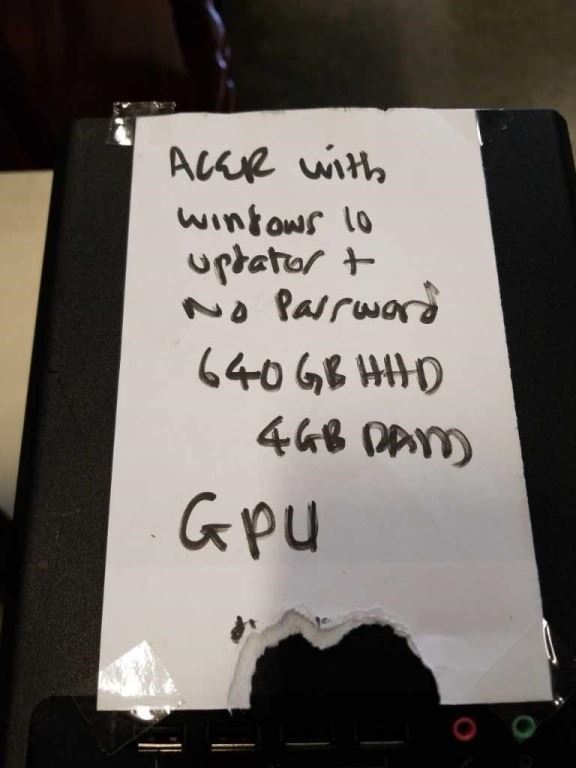 ACER with
windows 10
updator +
No Password
640 GB HHD
4GB RAM
GPU